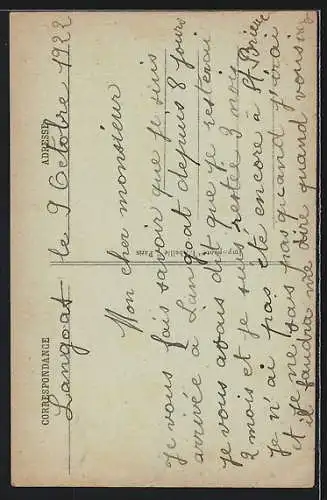 CORRESPONDANCE
ADRESSE
Langoat le 9 Octobre 1922
Mon cher monsieur
Je vous fais savoir que je suis
arrivée à Langoat depuis 8 jours
Je vous avais dit que je resterai
2 mois et je suis restée 3 mois
Je n'ai pas été encore à St Brieuc
et je ne sais pas quand j'irai
il faudra me dire quand vous
Paris